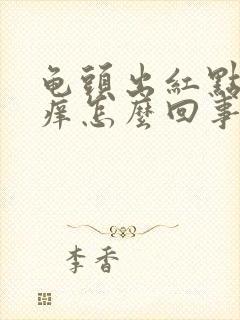 龟頭出紅點
痒怎麼回事
李香